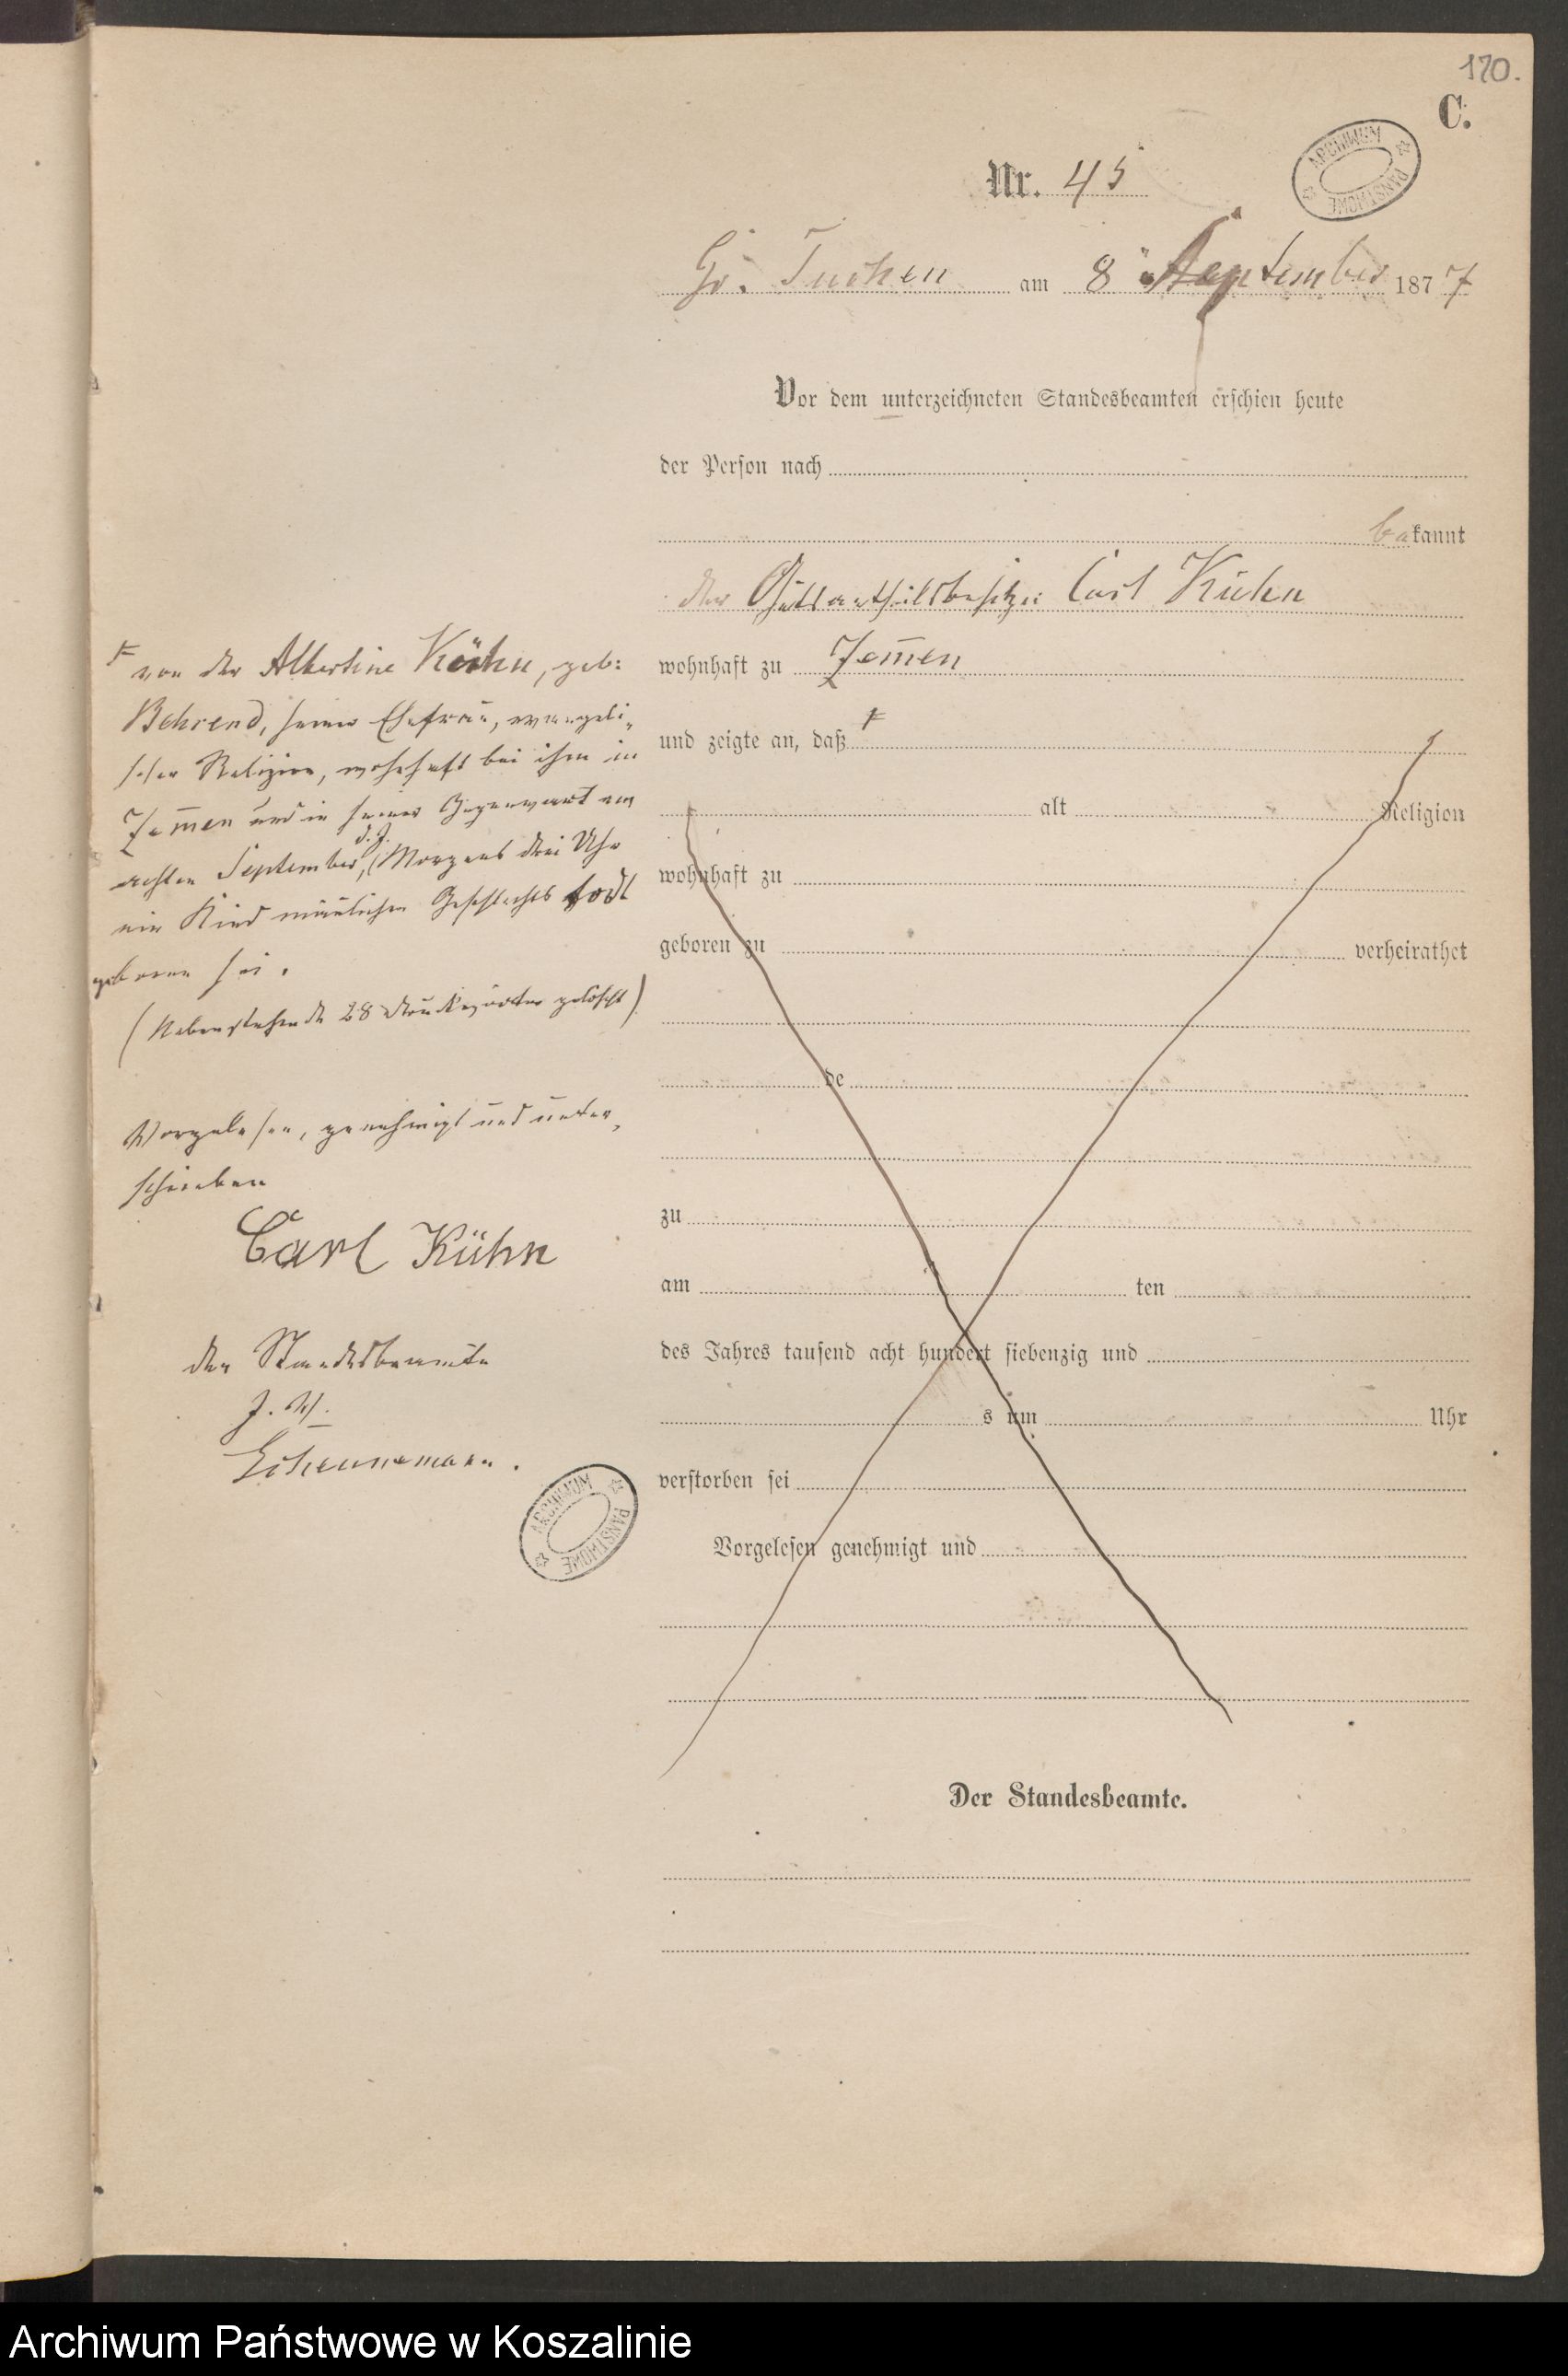 120.
C.
ARCHIWUM PAŃSTWOWE
Nr. 45
Gr. Tuchen am 8 ten September 1877
Vor dem unterzeichneten Standesbeamten erschien heute
der Person nach
bekannt
der Gutsantheilsbesitzer Carl Kühn
wohnhaft zu Zemmen
und zeigte an, daß F
alt Religion
wohnhaft zu
geboren zu verheirathet
de
zu
am ten
des Jahres tausend acht hundert siebenzig und
s um Uhr
verstorben sei
Vorgelesen genehmigt und
Der Standesbeamte.
F von der Albertine Kühn, geb:
Behrend, seiner Ehefrau, evangeli-
scher Religion, wohnhaft bei ihm in
Zem̅en und in seiner Gegenwart am
achten September d. J., Morgens drei Uhr
ein Kind mänlichen Geschlechts todt
geboren sei.
(Nebenstehende 28 Druckwörter gelöscht)
Vorgelesen, genehmigt und unter-
schrieben
Carl Kühn
der Standesbeamte
J. V.
Scheunemann.
ARCHIWUM PAŃSTWOWE
Archiwum Państwowe w Koszalinie